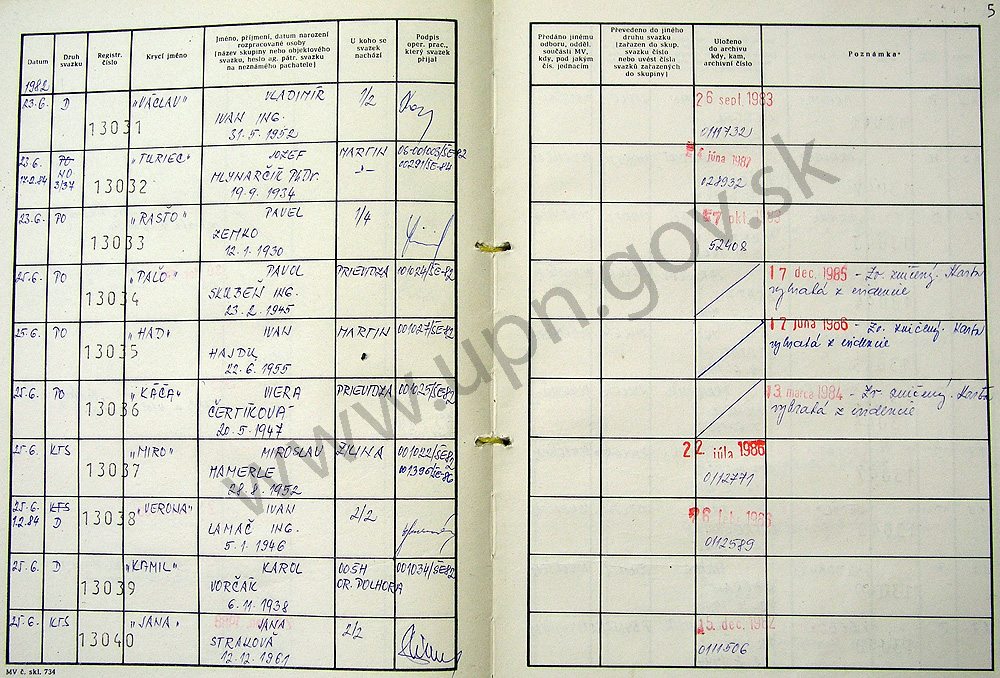 5
Datum
Druh svazku
Registr. číslo
Krycí jméno
Jméno, příjmení, datum narození
rozpracované osoby
(název skupiny nebo objektového
svazku, heslo ag. pátr. svazku
na neznámého pachatele)
U koho se
svazek
nachází
Podpis
oper. prac.,
který svazek
přijal
Předáno jinému
odboru, odděl.
součásti MV,
kdy, pod jakým
čís. jednacím
Převedeno do jiného
druhu svazku
(zařazen do skup.
svazku číslo
nebo uvést čísla
svazků zařazených
do skupiny)
Uloženo
do archivu
kdy, kam,
archivní číslo
Poznámka
1982
23.6. D 13031 "VÁCLAV" VLADIMÍR 1/2
IVAN ING.
31.5.1952
26 sept. 1983
0111732
23.6. PO 13032 "TURIEC" JOZEF MARTIN
NO
3/37
MLYNARČIČ PhDr.
19.9.1934
júna 1987
028932
23.6. PO 13033 "RASŤO" PAVEL 1/4
ZEMKO
12.1.1930
okt.
52408
25.6. PO 13034 "PAĽO" PAVOL PRIEVIDZA 001024/ŠE-82
ING.
23.2.1945
17 dec. 1985 - Zv. zničený. Karta
vybratá z evidencie
25.6. PO 13035 "HAD" IVAN MARTIN 001027/ŠE-82
HAJDU
22.6.1955
17 júna 1986 - Zv. zničený. Karta
vybratá z evidencie
25.6. PO 13036 "KÁČA" VIERA PRIEVIDZA 001025/ŠE-82
ČERTÍKOVÁ
20.5.1947
13. marca 1984 - Zv. zničený. Karta
vybratá z evidencie
25.6. KTS 13037 "MIRO" MIROSLAV ŽILINA 001022/ŠE-82
HAMERLE 001396/ŠE-86
28.8.1952
22. júla 1986
0112771
25.6. KTS 13038 "VERONA" IVAN 2/2
12.84 D
LAMAČ ING.
5.1.1946
feb.
0112589
25.6. D 13039 "KAMIL" KAROL OOŠH 001034/ŠE-82
VORČÁK OR. POLHORA
6.11.1938
25.6. KTS 13040 "JANA" JANA 2/2
STRAKOVÁ
12.12.1961
15. dec. 1982
0111506
MV č. skl. 734
www.upn.gov.sk